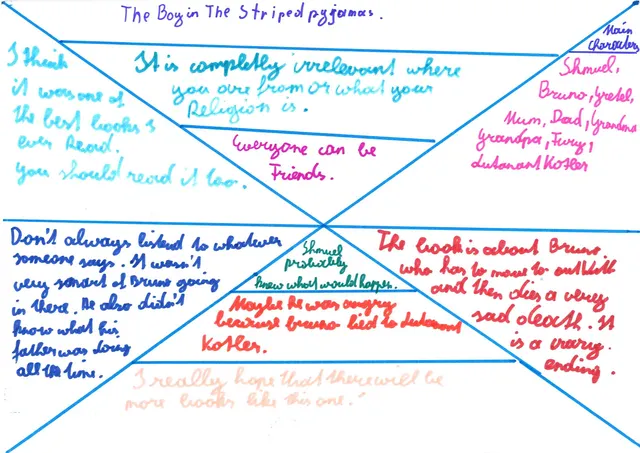 The Boy in The Striped pyjamas.
Main
characters
Shmuel,
Bruno, Gretel,
Mum, Dad, Grandma
Grandpa, Fury,
Lutanant Kotler
I think
it was one of
the best books I
ever Read.
you should read it too.
It is completly irrelevant where
you are from or what your
Religion is.
Everyone can be
Friends.
Don't always listend to whatever
someone says. It wasn't
very smart of Bruno going
in there. He also didn't
know what his
father was doing
all the time.
Shmuel
probably
knew what would happen.
Maybe he was angry
because bruno lied to Lutanant
Kotler.
I really hope that there will be
more books like this one.
The book is about Bruno.
who has to move to
and then dies a very
sad death. It
is a crazy
ending.